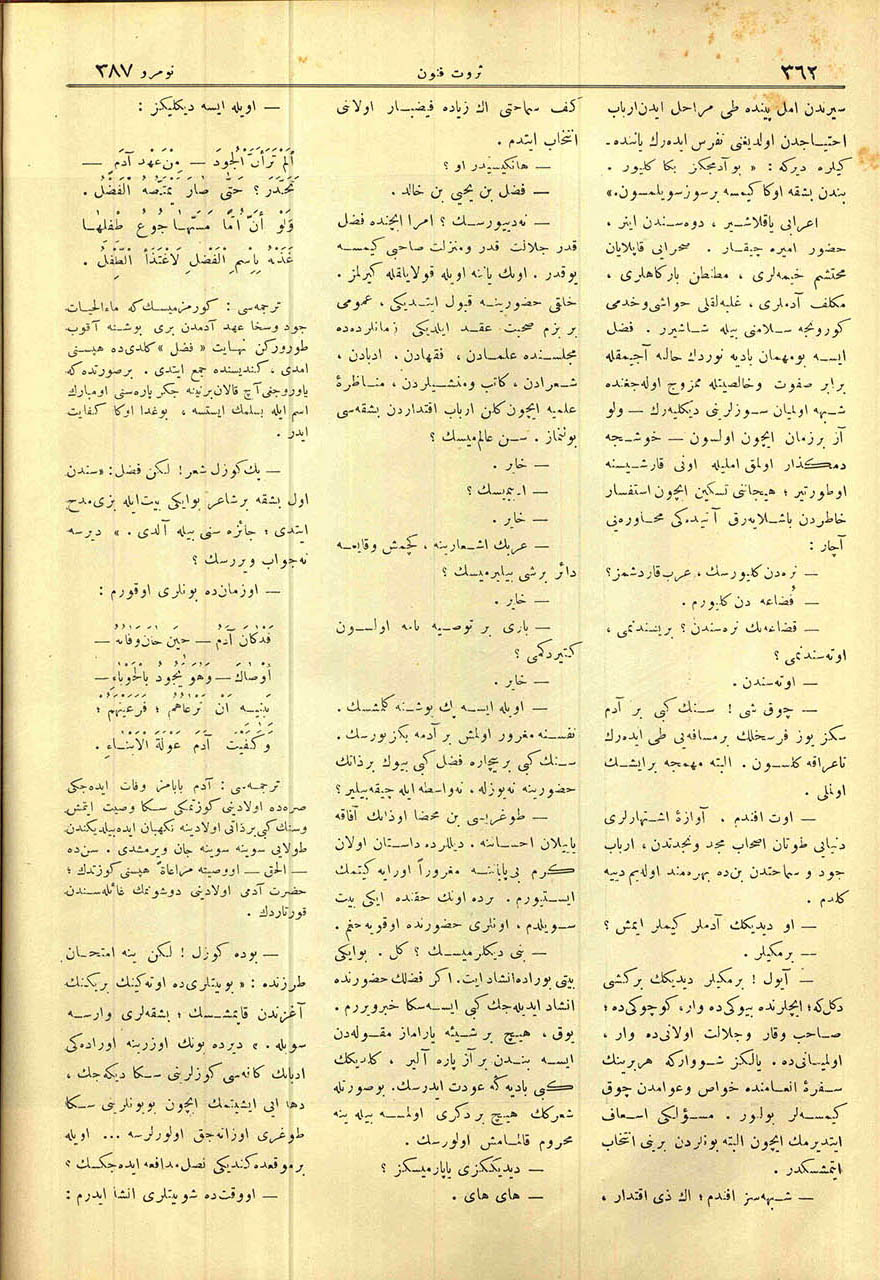 ٣٦٢
ثروت فنون
نومرو ٣٨٧
سیرندن امل پینده طی مراحل ایدن ارباب
احتیاجدن اولدیغنی تفرس ایده‌رك یاننده‌ـ
كیلره دیركه : « بو آدمجكز بكا كلیور .
بندن بشقه اوكا كیمسه بر سوز سویلمسون.»
اعرابی یاقلاشیر ، دوه‌سندن اینر ،
حضور امیره چیقار . صحرایی قاپلایان
محتشم خیمه‌لری ، مطنطن بارگاهلری ،
مكلف آدملری ، غلبه‌لقلی حواشی وخدمی
كورونجه سلامنی بیله شاشیرر . فضل
ایسه بو مهمان بادیه نوردك حالنه آجیمقله
برابر صفوت وخالصیتله ممزوج اوله‌جغنده
شبهه اولمیان سوزلرینی دیكلیه‌رك — ولو
آز بر زمان ایچون اولسون — خوشجه
دمگذار اولمق املیله اونی قارشیسنه
اوطورتیر ؛ هیجاننی تسكین ایچون استفسار
خاطردن باشلایه‌رق آتیده‌كی محاوره‌یی
آچار :
— نره‌دن كلیورسك ، عرب قارداشمز؟
— قُضاعه دن كلیورم .
— قضاعه‌نك نره‌سندن ؟ بریسندنمی ،
اوته‌سندنمی ؟
— اوته‌سندن .
— چوق شی ! سنك كبی بر آدم
سكز یوز فرسخلك بر مسافه‌یی طی ایده‌رك
تا عراقه كلسون . البته مهمجه بر ایشك
اولملی .
— اوت افندم . آوازۀ اشتهارلری
دنیایی طوتان اصحاب مجد ونجدتدن ، ارباب
جود و سماحتدن بن‌ده بهره‌مند اوله‌یم دییه
كلدم .
— او دیدیكك آدملر كیملر ایمش ؟
— برمكیلر .
— آیول ! برمكیلر دیدیكك بر كشی
دكل كه ؛ ایچلرنده بیوكی ده وار، كوچوكی ده؛
صاحب وقار وجلالت اولانی ده وار ،
اولمیانی ده . یالكز شو واركه هر برینك
سفرۀ انعامنده خواص وعوامدن چوق
كیمسه‌لر بولنور . مسئولكی اسعاف
ایتدیرمك ایچون البته بونلردن برینی انتخاب
ایتمشسكدر .
— شبهه‌سز افندم ؛ اك ذی اقتدار ،
كف سماحتی اك زیاده فیضبار اولانی
انتخاب ایتدم .
— هانكیسیدر او ؟
— فضل بن یحیی بن خالد .
— نه‌دییورسك ؟ امرا ایچنده فضل
قدر جلالت قدر ومنزلت صاحبی كیمسه
یوقدر . اونك یاننه اویله قولایلقله كیرلمز.
خلقی حضورینه قبول ایتدیكی ، عمومی
بر بزم صحبت عقد ایلدیكی زمانلرده‌ده
مجلسنده علمادن ، فقهادن ، ادبادن ،
شعرادن ، كاتب ومنشیلردن ، مناظرۀ
علمیه ایچون كلن ارباب اقتداردن بشقه‌سی
بولنماز . سن عالممیسك ؟
— خایر .
— ادیبمیسك ؟
— خایر .
— عربك اشعارینه ، كچمش وقایعه
دائر بر شی بیلیرمیسك ؟
— خایر .
— باری بر توصیه نامه اولسون
كتیردكمی ؟
— خایر .
— اویله ایسه پك بوشنه كلمشسك .
نفسنه مغرور اولمش بر آدمه بكزیورسك .
سنك كبی بر بیچاره فضل كبی بیوك بر ذاتك
حضورینه نه یوزله ، نه واسطه ایله چیقه‌بیلیر؟
— طوغریسی بن محضا او ذاتك آفاقه
یاییلان احساننه ، دیللرده داستان اولان
كرم بی‌پایاننه مغروراً اورایه كیتمك
ایستیورم . برده اونك حقنده ایكی بیت
سویلدم ، اونلری حضورنده اوقویه‌جغم .
— بنی دیكلرمیسك ؟ كل . بو ایكی
بیتی بوراده انشاد ایت. اكر فضلك حضورنده
انشاد ایدیله‌جك كبی ایسه سكا خبر ویررم .
یوق ، هیچ بر شیئه یاراماز مقوله‌دن
ایسه بندن بر آز پاره آلیر ، كلدیكك
كبی بادیه‌كه عودت ایدرسك. بو صورتله
شعركك هیچ بر دكری اولمسه بیله ینه
محروم قالمامش اولورسك .
— دیدیككزی یاپارمیسكز ؟
— های های .
— اویله ایسه دیكلیكز :
أَلَمْ تَرَ أَنَّ الْجُودَ — مِنْ عَهْدِ آدَمَ —
تَحَدَّرَ ؟ حَتَّى صَارَ يَمْتَصُّهُ الْفَضْلُ .
وَلَوْ أَنَّ أُمًّا مَسَّهَا جُوعُ طِفْلِهَا
غَذَتْهُ بِاِسْمِ الْفَضْلِ لَاغْتَذَأَ الطِّفْلُ .
ترجمه‌سی : كورمزمیسك كه ماءالحیات
جود وسخا عهد آدمدن بری بوشنه آقوب
طورورکن نهایت « فضل » كلدی ده هپسنی
امدی ، كندیسنده جمع ایتدی . بر صورتده كه
یاوروجغی آچ قالان بر نینه جكر پاره‌سنی او مبارك
اسم ایله بسلمك ایستسه ، بو غدا اوكا كفایت
ایدر .
— پك كوزل شعر ! لكن فضل : «سندن
اول بشقه بر شاعر بو ایكی بیت ایله بزی مدح
ایتدی ؛ جائزه‌سنی بیله آلدی . » دیرسه
نه جواب ویررسك ؟
— او زمان ده بونلری اوقورم :
قَدْ كَانَ آدَمُ — حِينَ حَانَ وَفَاتُهُ —
أَوْصَاكَ — وَهُوَ يَجُودُ بِالْحَوْبَاءِ —
بِبَنِيهِ أَنْ تَرْعَاهُمْ ؛ فَرَعَيْتَهُمْ ؛
وَكَفَيْتَ آدَمَ عَوْلَةَ الْأَبْنَاءِ .
ترجمه‌سی : آدم بابامز وفات ایده‌جكی
صره‌ده اولادینی كوزتمكی سكا وصیت ایتمش
وسنك كبی بر ذاتی اولادینه نكهبان ایده‌بیلدیكندن
طولایی سوینه سوینه جان ویرمشدی . سن ده
— الحق — او وصیته مراعاةً هپسنی كوزتدك ؛
حضرت آدمی اولادینی دوشونمك غائله‌سندن
قورتاردك .
— بوده كوزل ! لكن ینه امتحان
طرزنده : « بو بیتلری ده اوته‌كینك بریكینك
آغزندن قاپمشسك ؛ بشقه‌لری وارسه
سویله . » دیر ده بونك اوزرینه اوراده‌كی
ادبانك كافه‌سی كوزلرینی سكا دیكه‌جك ،
دها ایی ایشیتمك ایچون بویونلرینی سكا
طوغری اوزانه‌جق اولورلرسه ... اویله
بر موقعده كندیكی نصل مدافعه ایده‌جكسك ؟
— او وقت ده شو بیتلری انشا ایدرم :